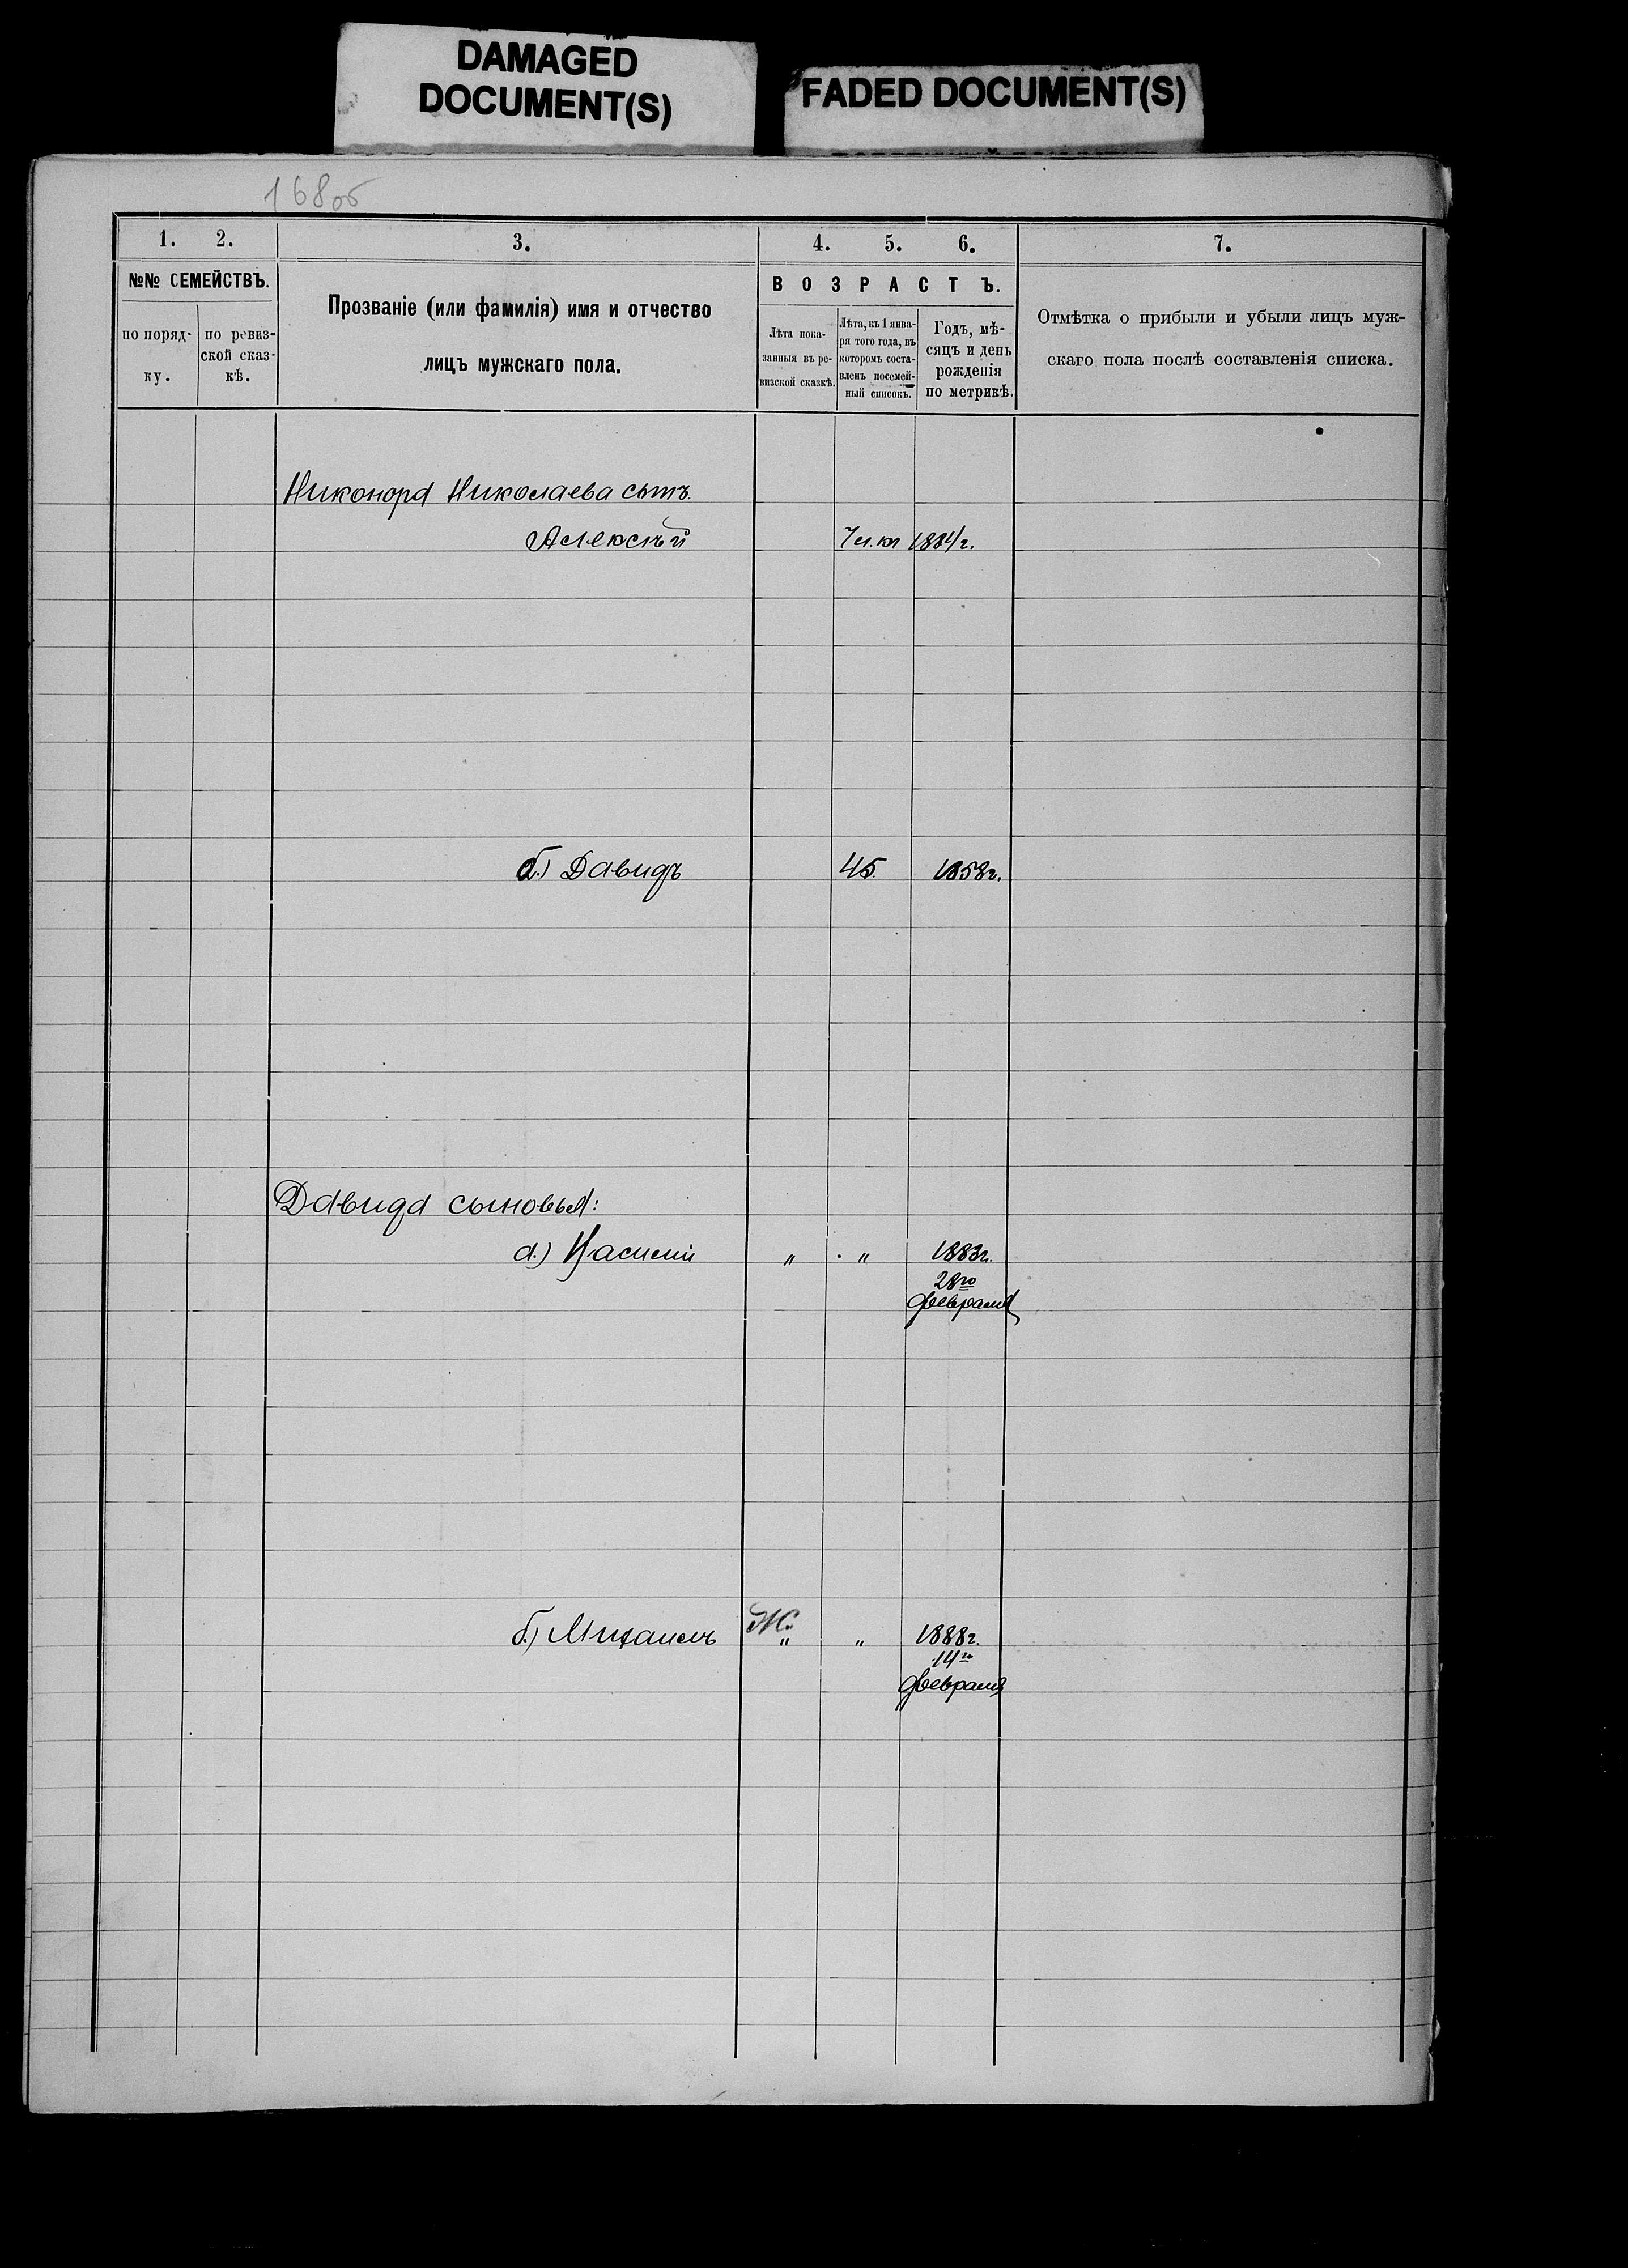 DAMAGED
DOCUMENT(S)
FADED DOCUMENT(S)
168об
1. 2. 3. 4. 5. 6. 7.
№№ СЕМЕЙСТВЪ.
по поряд-
ку.
по ревиз-
ской сказ-
кѣ.
Прозваніе (или фамилія) имя и отчество
лицъ мужскаго пола.
ВОЗРАСТЪ.
Лѣта пока-
занныя въ ре-
визской сказкѣ.
Лѣта, къ 1 янва-
ря того года, въ
которомъ соста-
вленъ посемей-
ный списокъ.
Годъ, мѣ-
сяцъ и день
рожденія
по метрикѣ.
Отмѣтка о прибыли и убыли лицъ муж-
скаго пола послѣ составленія списка.
Никонора Николаева сынъ
Алексѣй 1884г.
б.) Давидъ 45. 1858г.
Давида сыновья:
а.) Василій " " 1883г.
28го
февраля
б.) Михаилъ Ж. " " 1888г.
14го
февраля